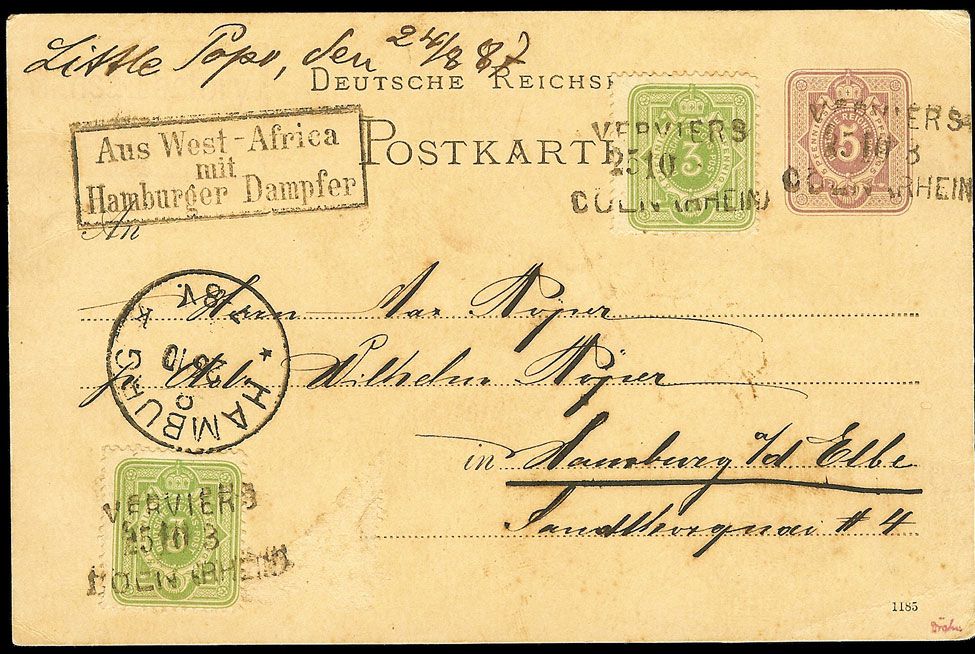 Little Popo, den 24/8 87
DEUTSCHE REICHSP
POSTKARTE
Aus West-Africa
mit
Hamburger Dampfer
An
3
5
VERVIERS
25 10
COELN (RHEIN)
VERVIERS
25 10 3
COELN (RHEIN)
Herrn Max Röper
Wilhelm Röper
HAMBURG
in Hamburg a/d Elbe
Sandthorquai # 4
3
VERVIERS
25 10 3
COELN (RHEIN)
1185